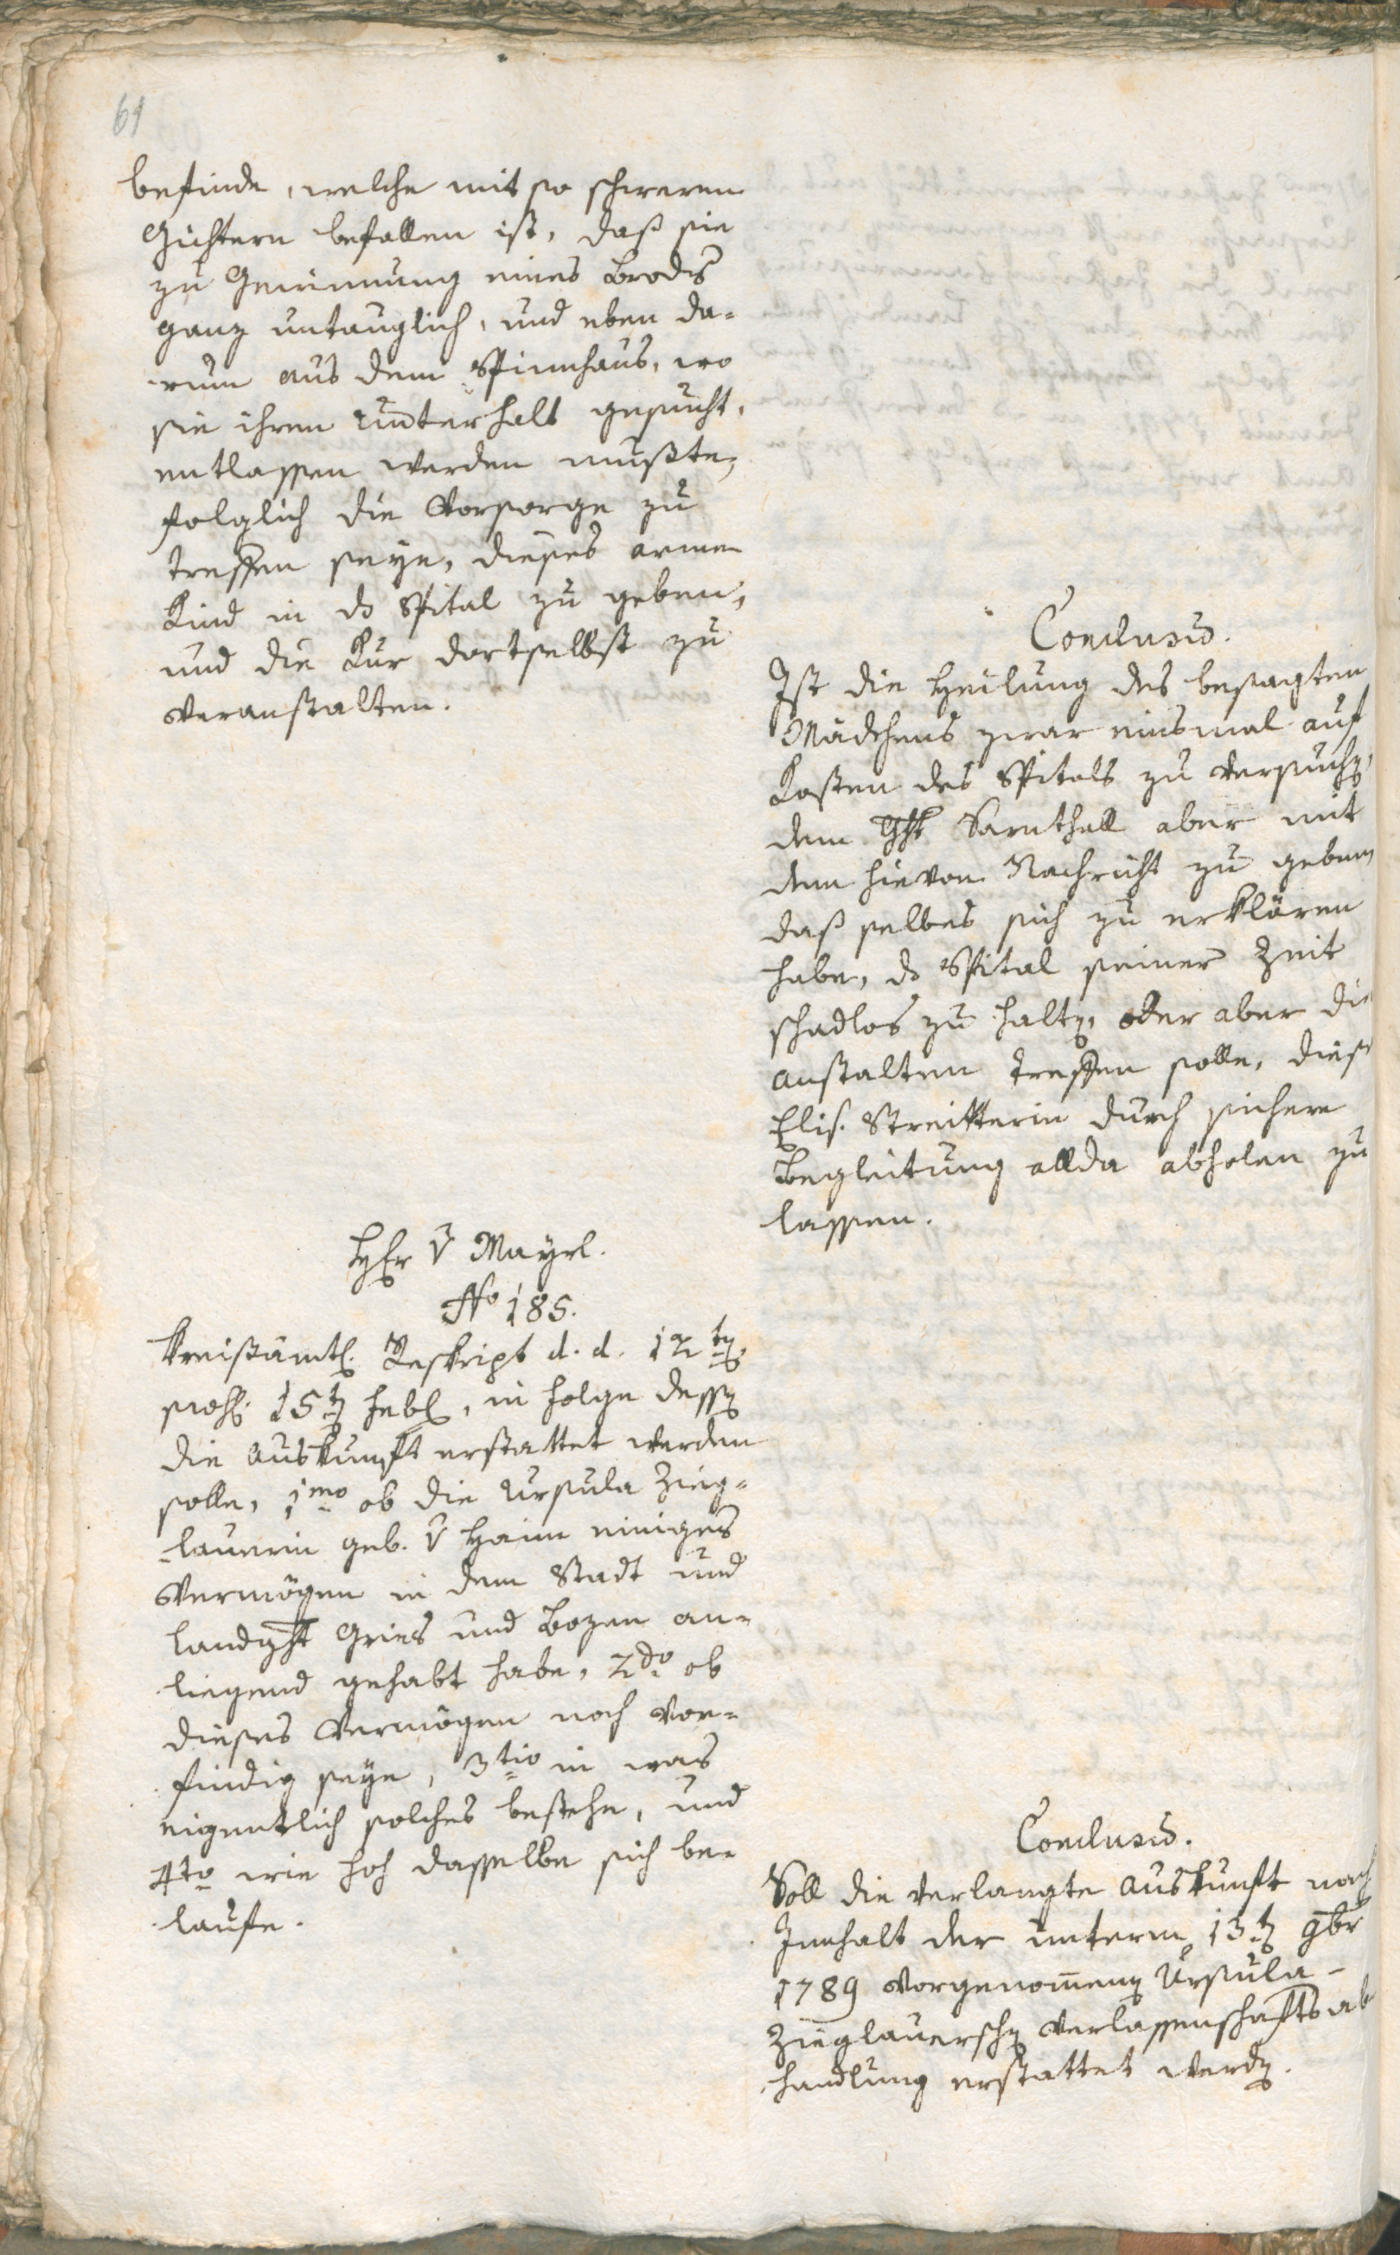 61
befinde, welche mit so schweren
Gichtern befallen ist, daß sie
zu Gewinnung eines Brods
ganz untauglich, und eben da-
rum aus dem Spinnhaus, wo
sie ihren Unterhalt gesucht,
entlassen werden mußte,
folglich die Vorsorge zu
treffen seye, dieses arme
Kind in ds Spital zu geben,
und die Kur dortselbst zu
veranstalten.
Conclusum.
Ist die Heilung des besagten
Mädchens zwar einsmal auf
Kosten des Spitals zu versuchen,
dem Ght Sarnthall aber mit
dem hievon Nachricht zu geben
daß selbes sich zu erklären
habe, ds Spital seiner Zeit
schadlos zu halten, oder aber die
Anstalten treffen solle, diese
Elis. Streitterin durch sichere
Begleitung allda abholen zu
lassen.
Hr v Mayrl.
No 185.
Kreisämtl. Reskript d. d. 12ten
15ten Febl, in Folge dessen
die Auskunft erstattet werden
solle, 1mo ob die Ursula Zieg-
lauerin geb. v Haim einiges
Vermögen in dem Stadt und
Landght Gries und Bozen an-
liegend gehabt habe, 2do ob
dieses Vermögen noch vor-
findig seye, 3tio in was
eigentlich solches bestehe, und
4to wie hoh dasselbe sich be-
laufe.
Conclusum.
Soll die verlangte Auskunft nach
Innhalt der unterm 13ten 9br
1789 vorgenomenen Ursula-
Zieglauerschen Verlassenschafts ab
handlung erstattet werden.